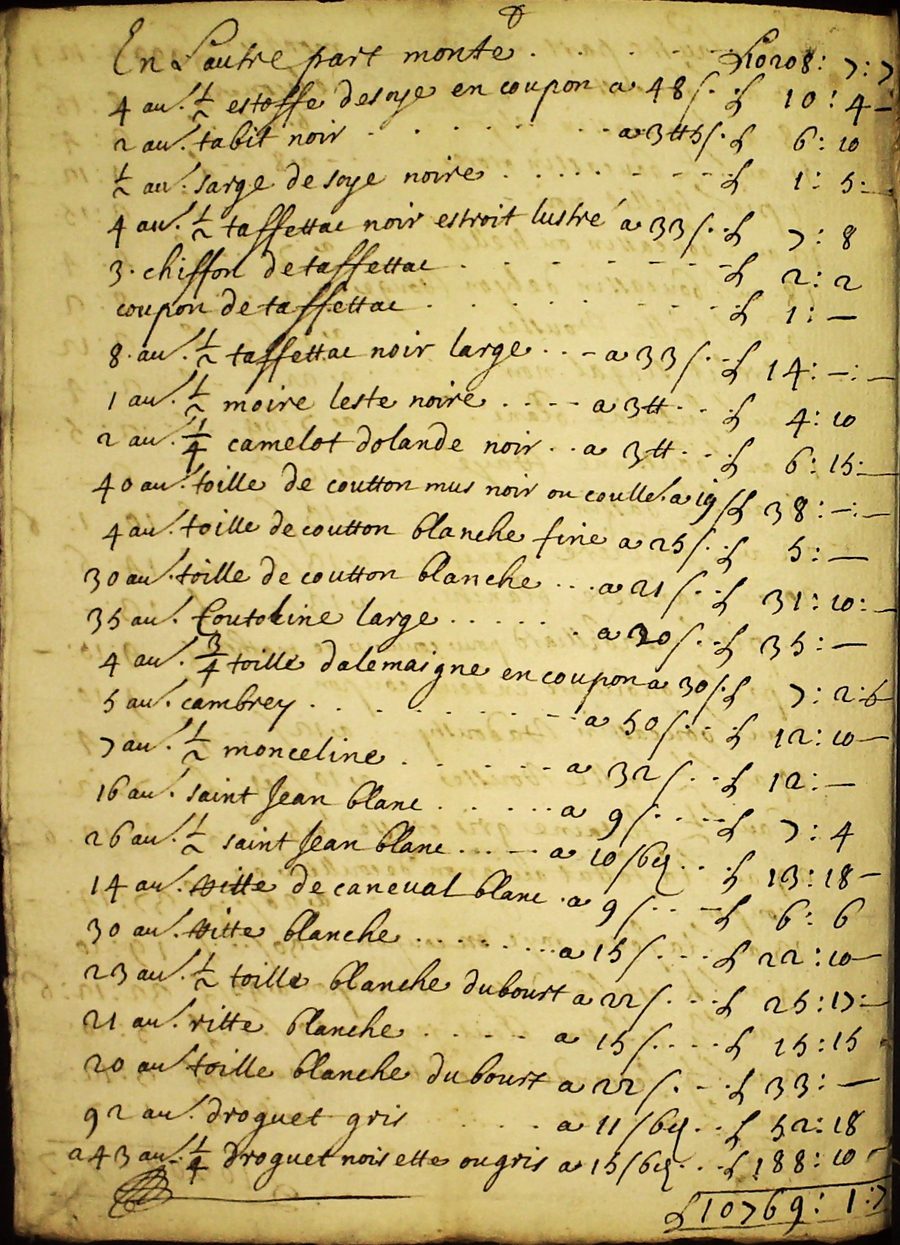 En L'autre part monte . . . . . . £ 10208 : 7 : 7
4 au. ½ estoffe de soye en coupon a 48 s. £ 10 : 4 –
2 au. tabit noir . . . . . . a 3 tt 5 s. £ 6 : 10
½ au. sarge de soye noire . . . . . . £ 1 : 5 : –
4 au. ½ taffettac noir estroit lustré a 33 s. £ 7 : 8
3 . chiffon de taffettac . . . . . . £ 2 : 2
coupon de taffettac . . . . . . £ 1 : –
8 . au. ½ taffettac noir large . . - a 33 s. £ 14 : – : –
1 au. ½ moire leste noire . . . . a 3 tt . . £ 4 : 10
2 au. ¼ camelot dolande noir . . a 3 tt . . £ 6 : 15 : –
40 au. toille de coutton mus noir ou coulle. a 19 s £ 38 : – : –
4 au. toille de coutton blanche fine a 25 s. £ 5 : –
30 au. toille de coutton blanche . . . a 21 s. £ 31 : 10 : –
35 au. Coutoline large . . . . . . a 20 s. £ 35 : –
4 au. ¾ toille dalemaigne en coupon a 30 s. £ 7 : 2 : 6
5 au. cambrey . . . . . . a 50 s. . £ 12 : 10 –
7 au. ½ monceline . . . . . a 32 s. . £ 12 : –
16 au. saint Jean blanc . . . . . a 9 s. . . £ 7 : 4
26 au. ½ saint Jean blanc . . . - a 10 s 6 d . . £ 13 : 18 –
14 au. ritte de caneval blanc . a 9 s . . - £ 6 : 6
30 au. ritte blanche . . . . . . a 15 s. . . £ 22 : 10 –
23 au. ½ toille blanche du bourt a 22 s. . . £ 25 : 17 : –
21 au. ritte blanche . . . . . a 15 s. . . . £ 15 : 15
20 au. toille blanche du bourt a 22 s. . - £ 33 : –
92 au. droguet gris . . . . a 11 s 6 d . . £ 52 : 18
243 au. ¼ droguet noisette ou gris a 15 s 6 d . . £ 188 : 10 –
£ 10769 : 1 : 7